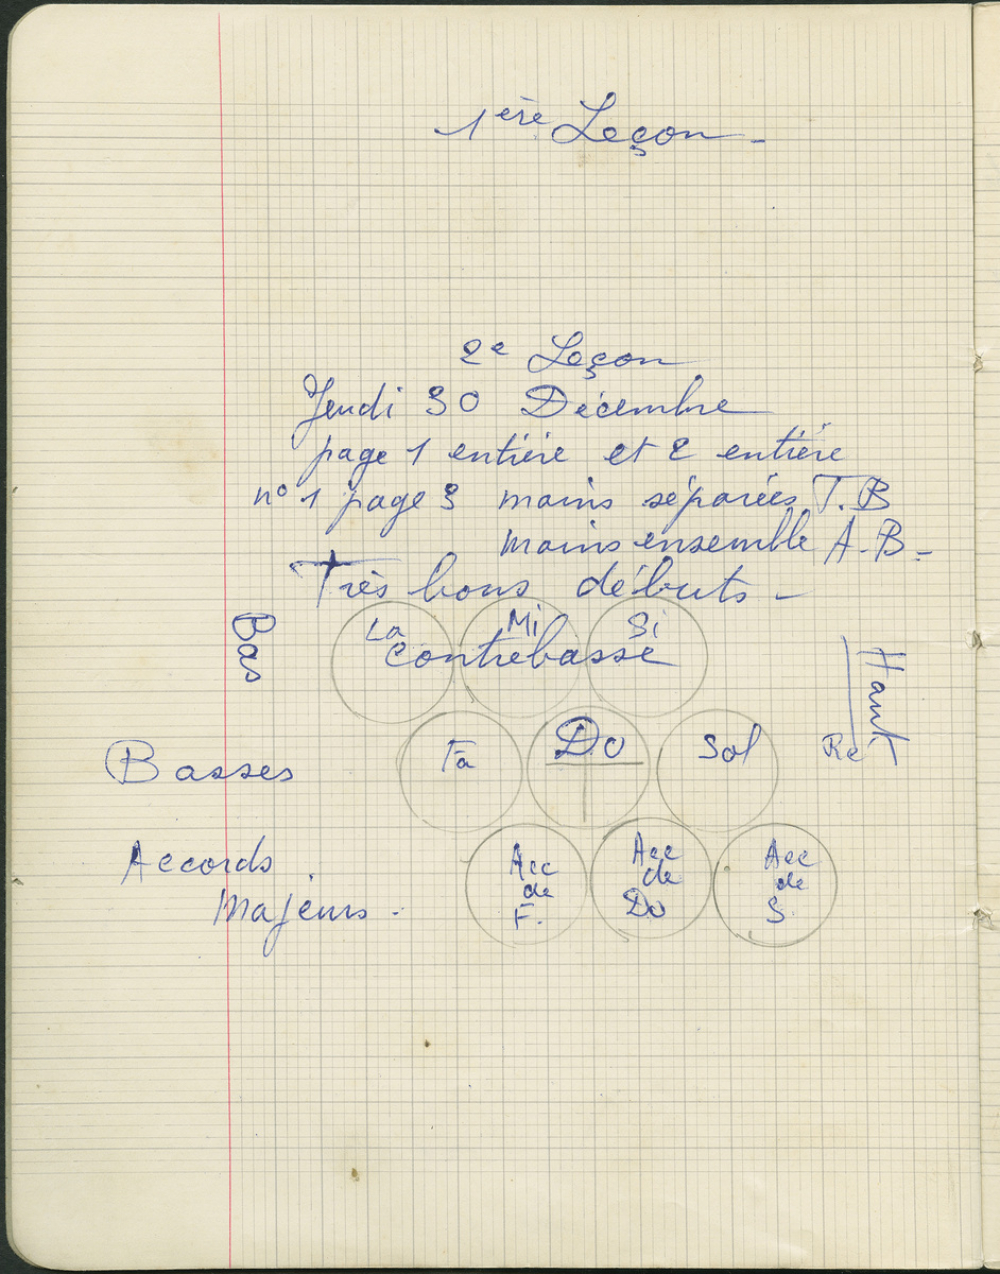 1ère Leçon -
2e Leçon
Jeudi 30 Décembre
page 1 entière et 2 entière
n° 1 page 3 mains séparées T.B
mains ensemble A.B-
Très bons débuts -
Bas
La Mi Si
contrebasse
Haut
Basses Fa Do Sol Ré
Accords
Majeurs.
Acc de F.
Acc de Do
Acc de S.